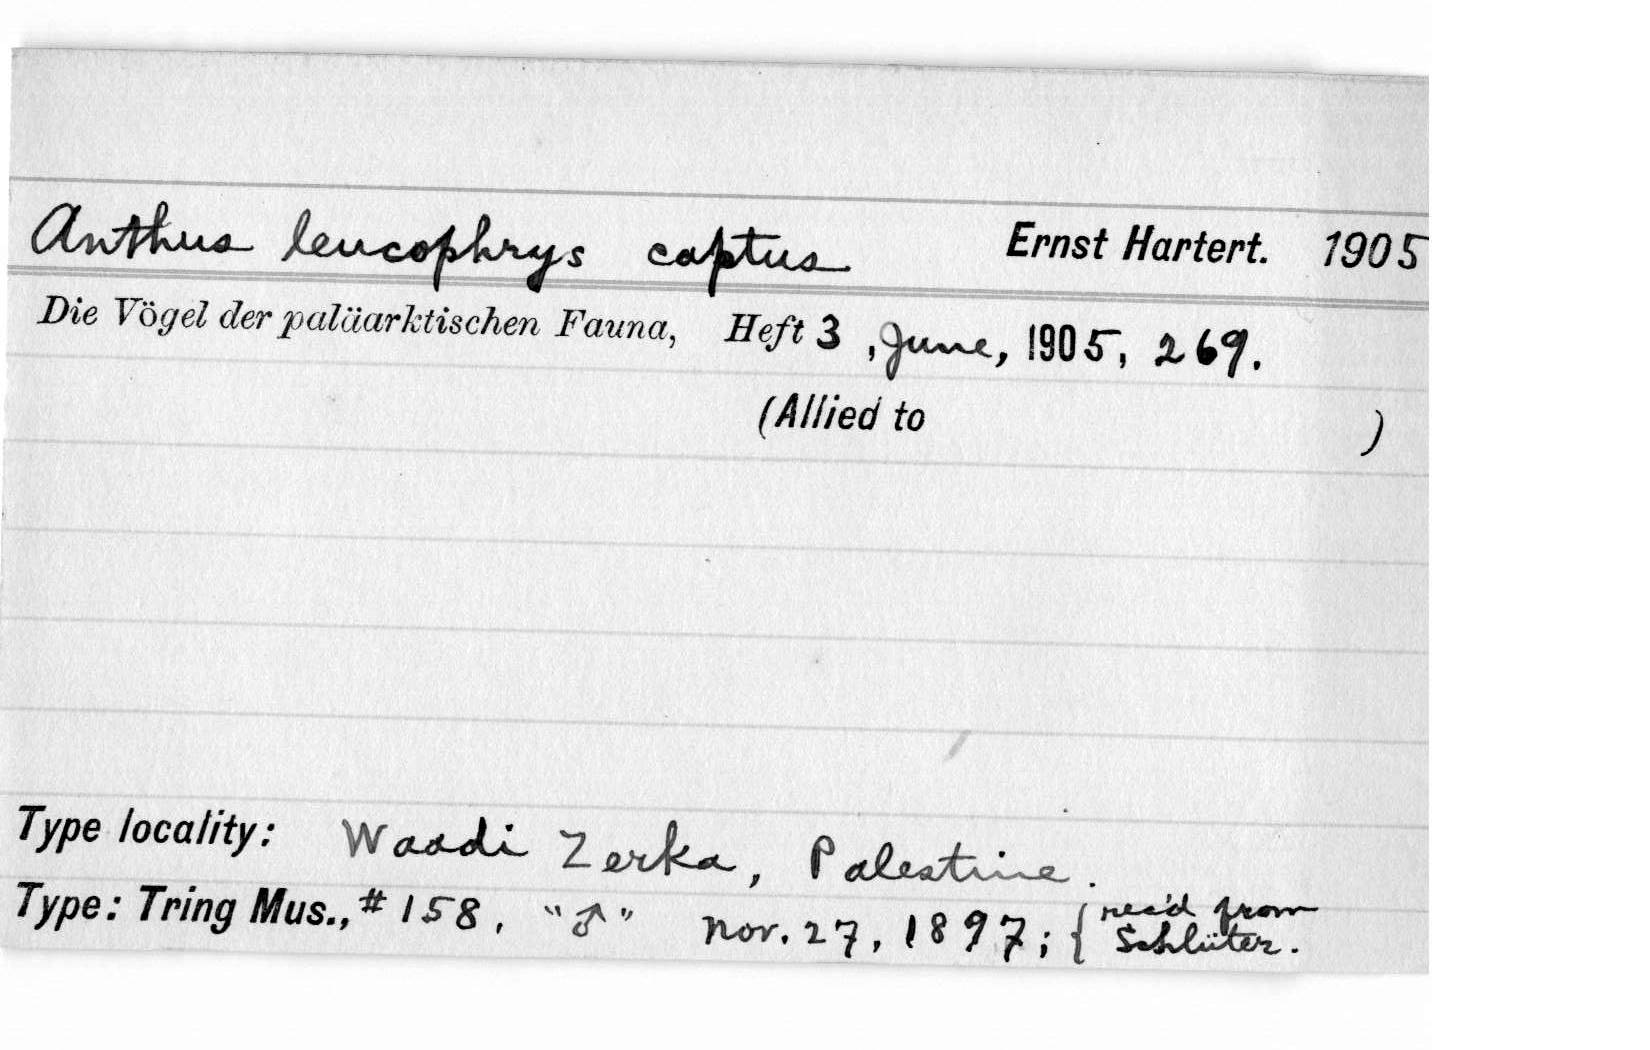 Anthus leucophrys captus Ernst Hartert. 1905
Die Vögel der paläarktischen Fauna, Heft 3, June, 1905, 269.
(Allied to )
Type locality: Waadi Zerka, Palestine.
Type: Tring Mus., # 158, "♂" Nov. 27, 1897; { rec'd from
Schlüter.